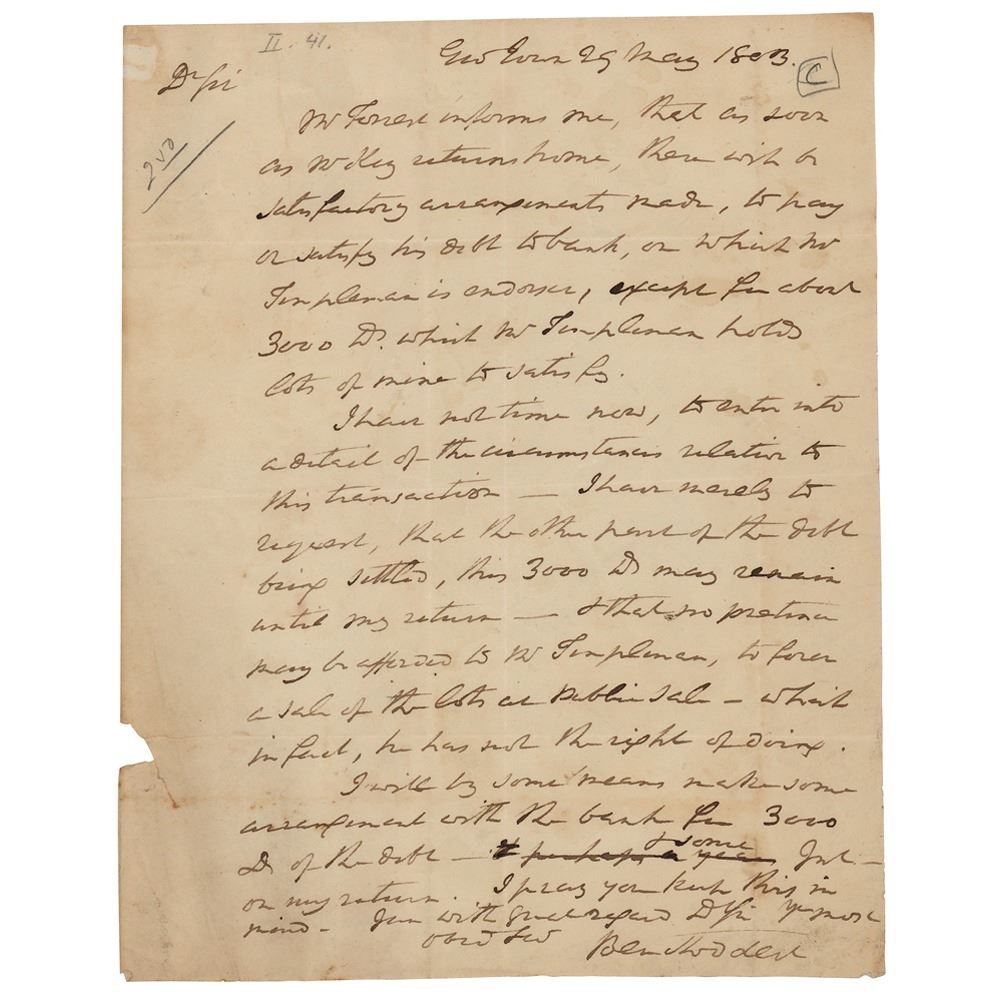 II. 41.
Geo Town 29 May 1803.
C
Dr Sir
250
Mr Forrest informs me, that as soon
as Mr Key returns home, there will be
satisfactory arrangements made, to pay
or satisfy his debt to bank, on which Mr
Templeman is endorser, except for about
3000 Ds. which Mr Templeman holds
lots of mine to satisfy.
I have not time now, to enter into
a detail of the circumstances relative to
this transaction — I have merely to
request, that the other part of the debt
being settled, this 3000 Ds may remain
until my return — & that no pretence
may be afforded to Mr Templeman, to force
a sale of the lots at Public Sale — which
in fact, he has not the right of doing.
I will by some means make some
arrangement with the bank for 3000
Ds of the debt — & perhaps a year & some Int —
on my return. I pray you keep this in
mind — I am with great regard D Sir Yr most
obed Ser
Ben Stoddert